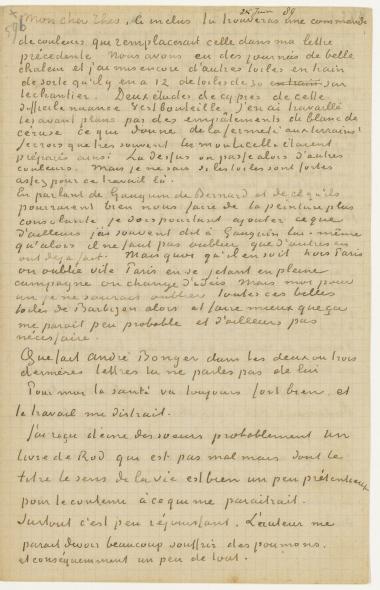 25 juin 89
596
Mon cher Theo, ci inclus tu trouveras une commande
de couleurs que remplacerait celle dans ma lettre
précédente. Nous avons eu des journées de belle
chaleur et j'ai mis encore d'autres toiles en train
de sorte qu'il y en a 12 de toiles de 30 sur
le chantier. Deux études de cyprès de cette
difficile nuance vert bouteille. j'en ai travaillé
les avant plans par des empâtements de blanc de
céruse ce qui donne de la fermeté aux terrains
je crois que très souvent les monticelli étaient
préparés ainsi. La dessus on passe alors d'autres
couleurs. Mais je ne sais si les toiles sont fortes
assez pour ce travail là.
En parlant de Gauguin de Bernard et de ce qu'ils
pourraient bien nous faire de la peinture plus
consolante je dois pourtant ajouter ce que
d'ailleurs j'ai souvent dit à Gauguin lui-même
qu'alors il ne faut pas oublier que d'autres en
ont déjà fait. Mais quoi qu'il en soit hors Paris
on oublie vite Paris en se jetant en pleine
campagne on change d'idées mais moi pour
un je ne saurais oublier toutes ces belles
toiles de Barbizon alors et faire mieux que ça
me parait peu probable et d'ailleurs pas
nécessaire.
Que fait André Bonger dans les deux ou trois
dernières lettres tu ne parles pas de lui
Pour moi la santé va toujours fort bien, et
le travail me distrait.
J'ai reçu d'une des soeurs probablement un
livre de Rod qui est pas mal mais dont le
titre le sens de la vie est bien un peu prétentieux
pour le contenu à ce qui me paraitrait.
Surtout c'est peu réjouissant. L'auteur me
parait devoir beaucoup souffrir des poumons.
et conséquemment un peu de tout.